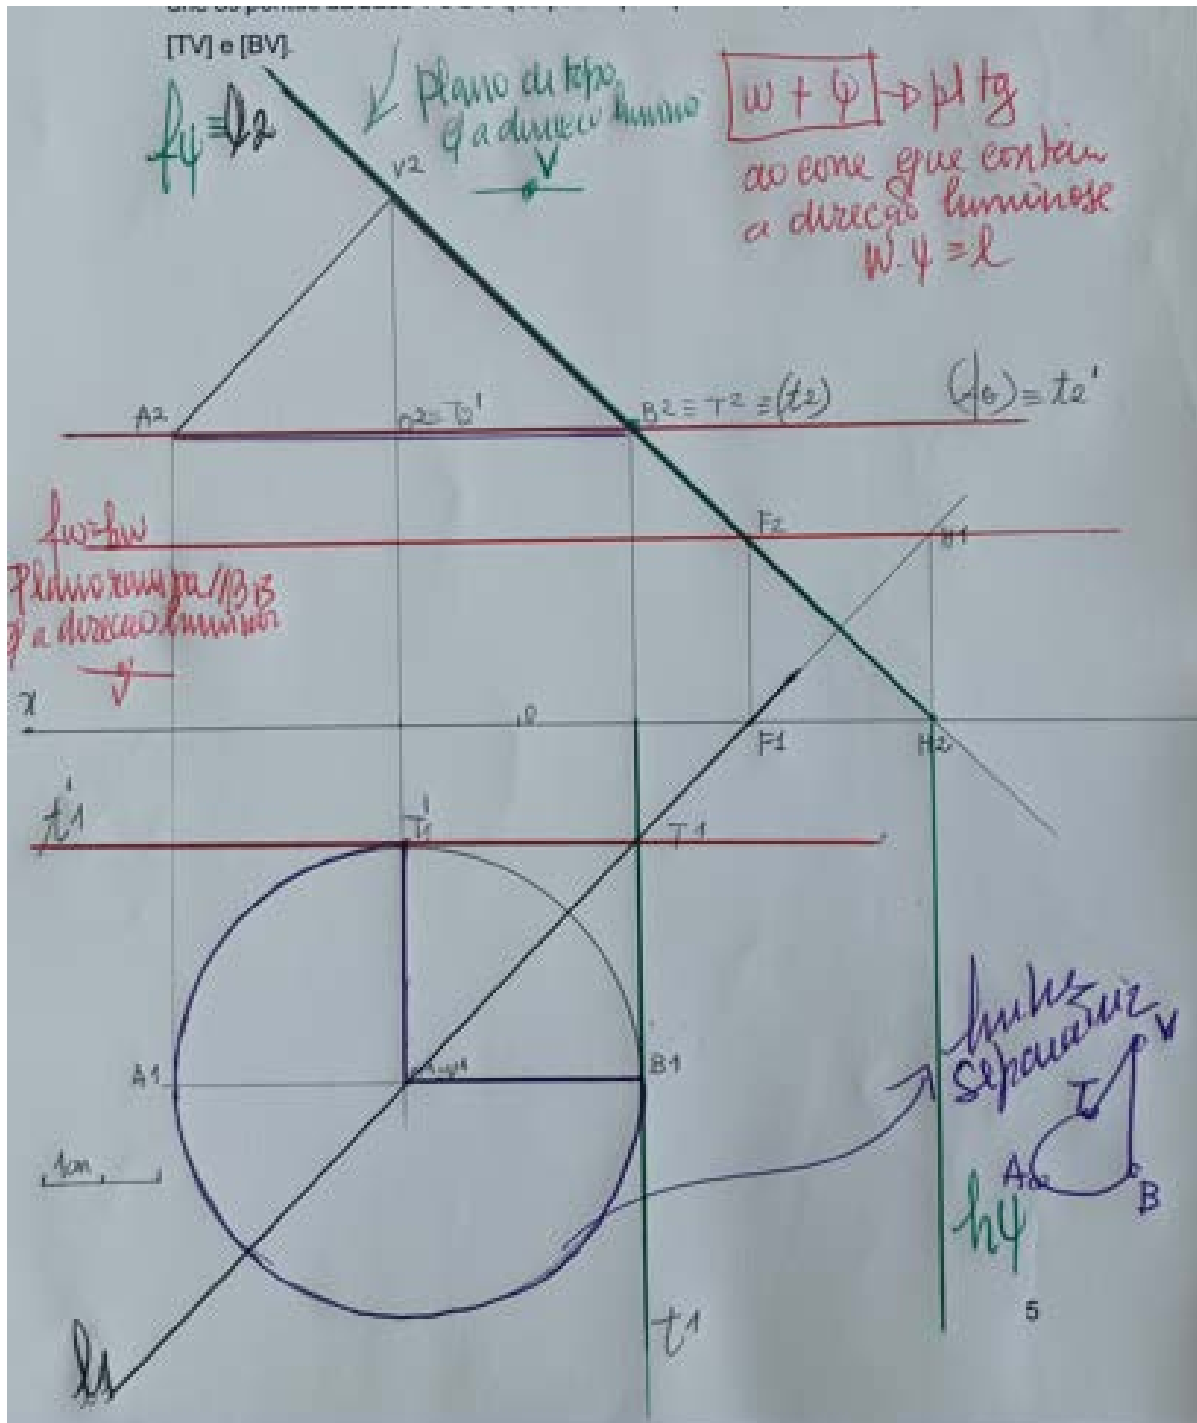 [TV] e [BV].
fψ≡l2
plano de topo
q a direcc lumino
V
w + ψ → pl tg
ao cone que contém
a direcção luminose
w.ψ ≡ l
V2
A2
T2'
B2 ≡ T2 ≡ (t2)
≡ t2'
fw≡hw
Plano rampa//β13
q a direcao luminos
F2
H1
x
F1
H2
t'1
T'1
T1
A1
B1
1cm
linha
separatriz
V
T
A
B
hψ
5
t1
l1